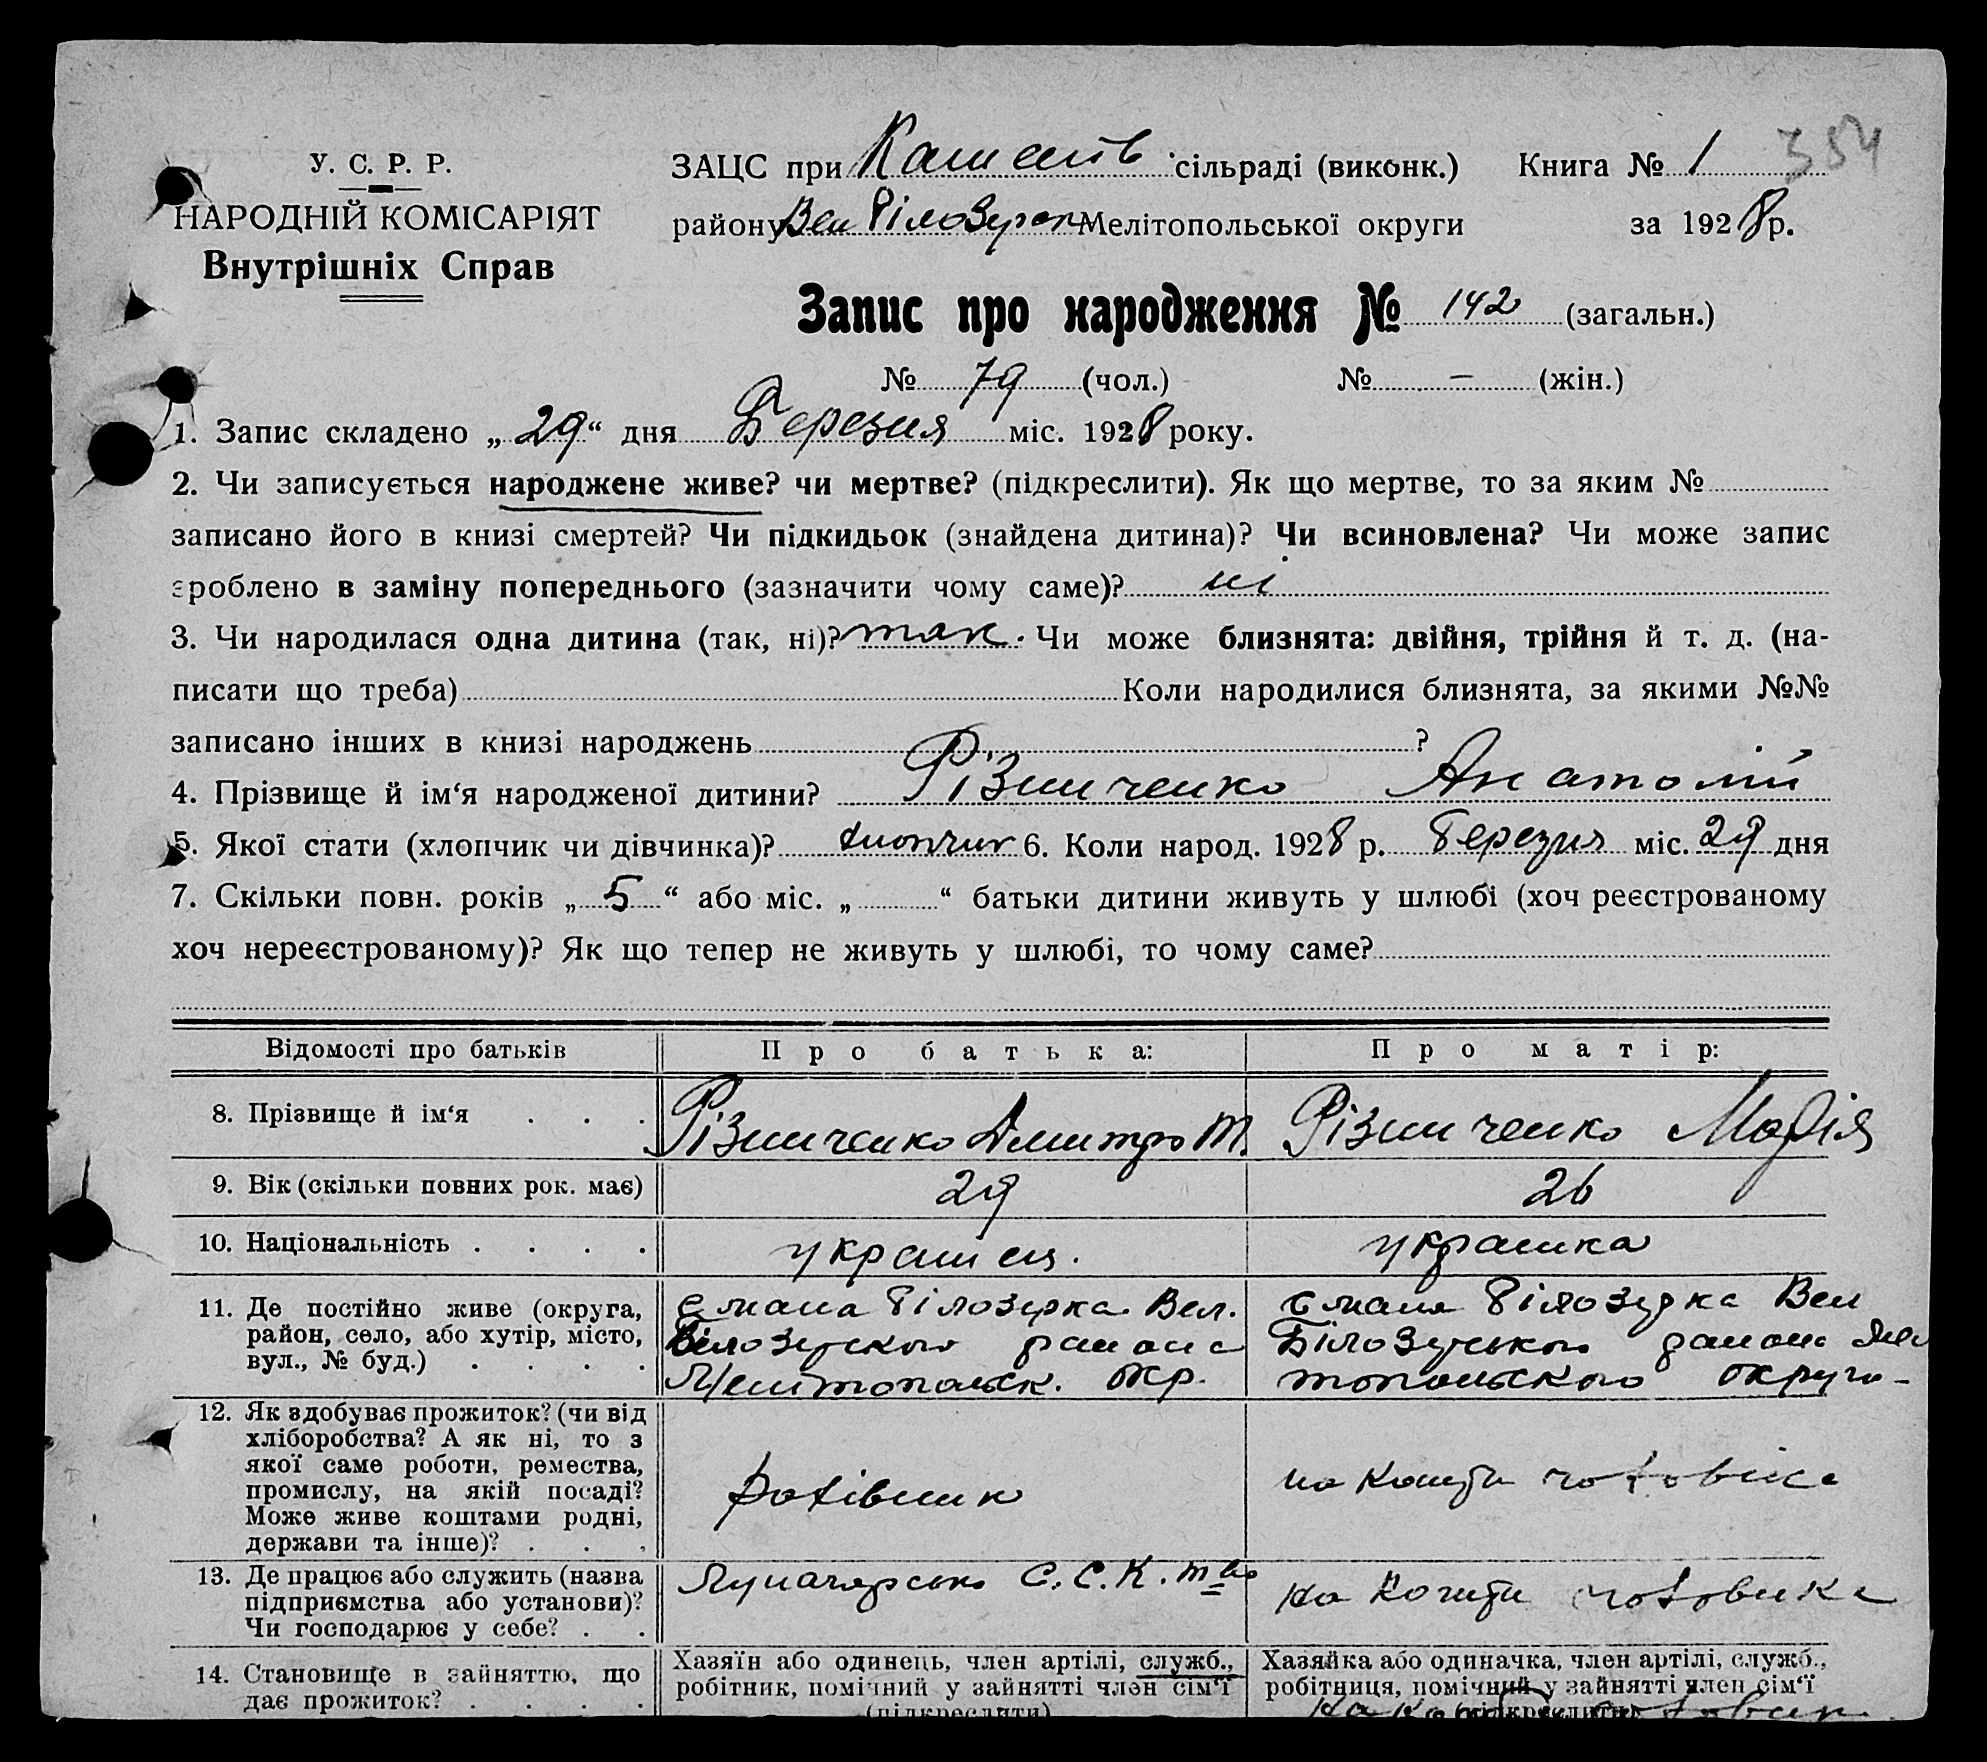 У. С. Р. Р.
НАРОДНІЙ КОМІСАРІЯТ
Внутрішніх Справ
ЗАЦС при сільраді (виконк.) Книга № 1 354
району Вел Білозерск Мелітопольської округи за 1928 р.
Запис про народження № 142 (загальн.)
№ 79 (чол.) № – (жін.)
1. Запис складено „29“ дня Березня міс. 1928 року.
2. Чи записується народжене живе? чи мертве? (підкреслити). Як що мертве, то за яким №
записано його в книзі смертей? Чи підкидьок (знайдена дитина)? Чи всиновлена? Чи може запис
зроблено в заміну попереднього (зазначити чому саме)? ні
3. Чи народилася одна дитина (так, ні)? так. Чи може близнята: двійня, трійня й т. д. (на-
писати що треба) Коли народилися близнята, за якими №№
записано інших в книзі народжень ?
4. Прізвище й ім‘я народженої дитини? Різниченко Анатолій
5. Якої стати (хлопчик чи дівчинка)? хлопчик 6. Коли народ. 1928 р. березня міс. 29 дня
7. Скільки повн. років „5“ або міс. „ “ батьки дитини живуть у шлюбі (хоч реєстрованому
хоч нереєстрованому)? Як що тепер не живуть у шлюбі, то чому саме?
Відомості про батьків Про батька: Про матір:
8. Прізвище й ім‘я . . . Різниченко Дмитро Т. Різниченко Марія
9. Вік (скільки повних рок. має) 29 26
10. Національність . . . . українец. українка
11. Де постійно живе (округа,
район, село, або хутір, місто,
вул., № буд.) . . . .
Білозерка Вел.
Білозерского района
Мелітопольск. окр.
Білозерка Вел
Білозерського района Мел
топольского округи-
12. Як здобуває прожиток? (чи від
хліборобства? А як ні, то з
якої саме роботи, ремества,
промислу, на якій посаді?
Може живе коштами родні,
держави та інше)? . . .
робівник
на кошти чоловіка
13. Де працює або служить (назва
підприємства або установи)?
Чи господарює у себе? . .
С. С. К. т-во
на кошти чоловіка
14. Становище в зайняттю, що
дає прожиток? . . . .
Хазяїн або одинець, член артілі, служб.,
робітник, помічний у зайнятті член сім‘ї
(підкреслити)
Хазяйка або одиначка, член артілі, служб.,
робітниця, помічний у зайнятті член сім‘ї
(підкреслити)